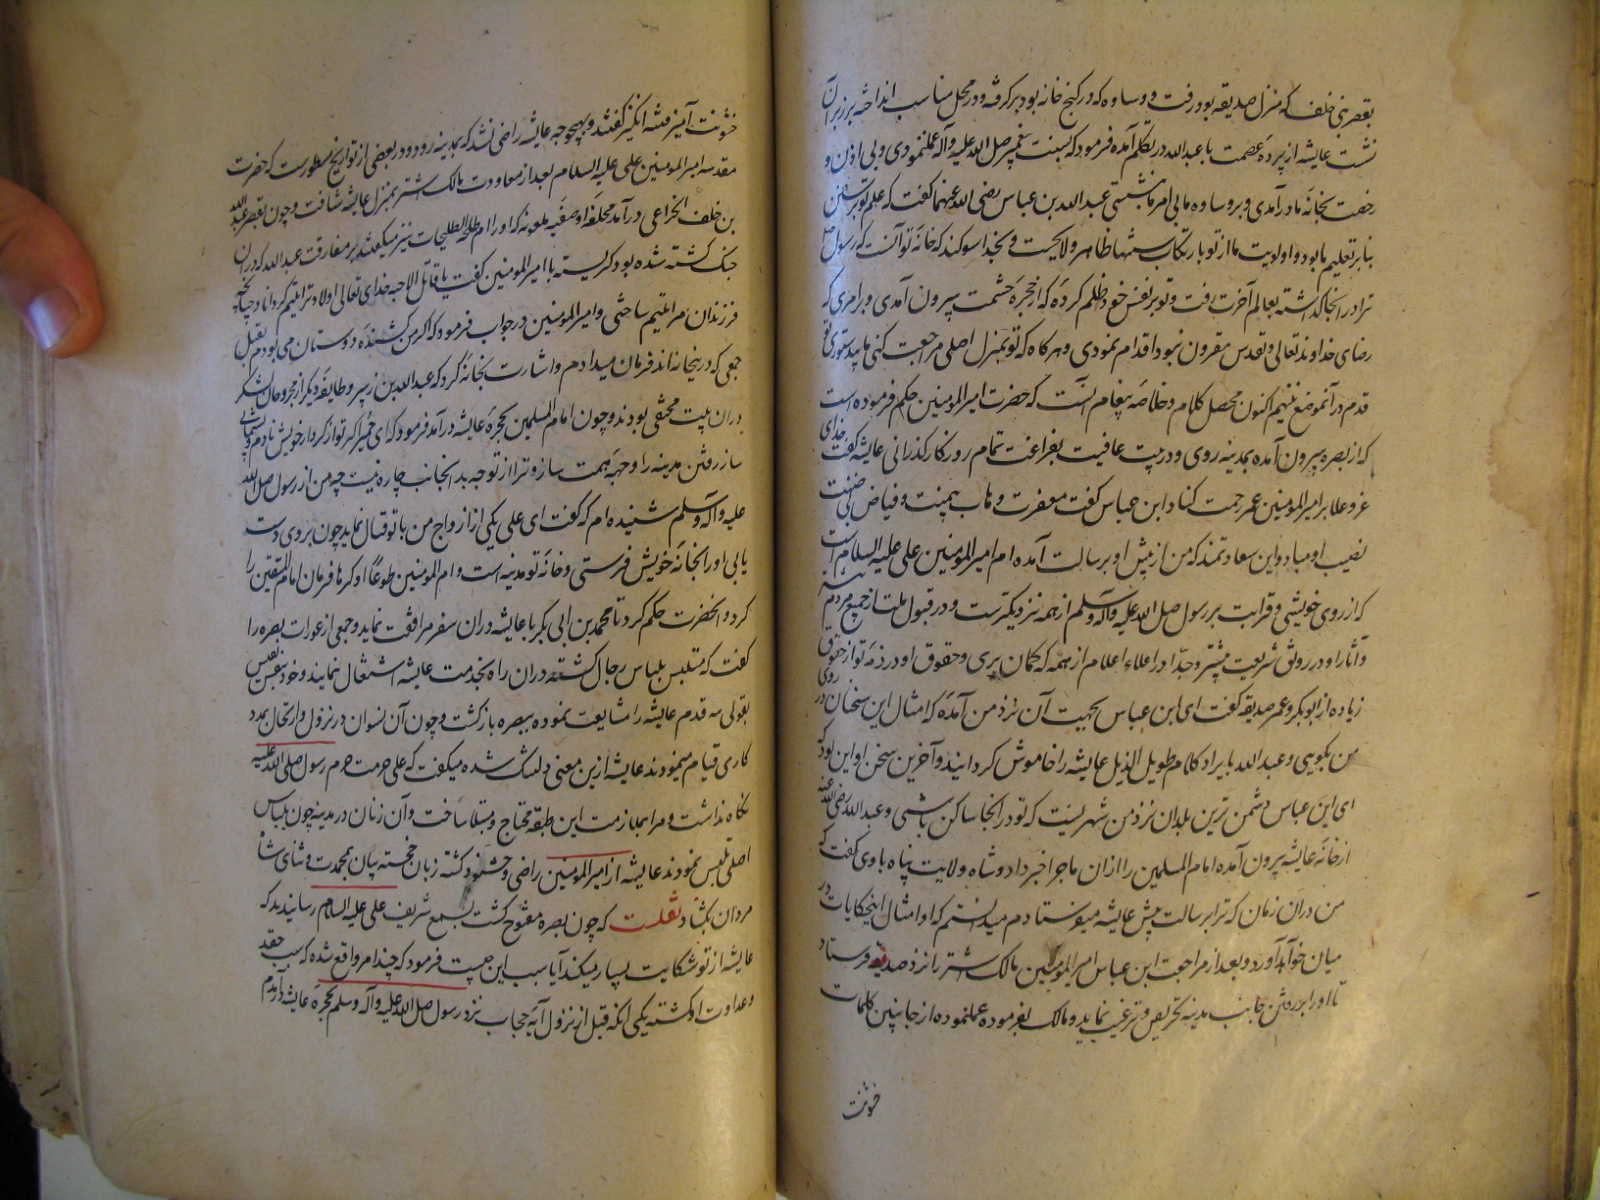 بقصر بنی خلف که منزل صدیقه بود رفت و وساوه که در کنج خانه بود برگرفته و در محل مناسب انداخته بر زبر آن
نشست عایشه از پرده عصمت با عبدالله در تکلم آمده فرمود که سنت پیغمبر صلی الله علیه و آله عمل ننمودی و بی اذن و
رخصت بخانه ما درآمدی و بر وساوه ما بی امر ما نشستی عبدالله بن عباس رضی الله عنهما گفت که علم تو بر سنن
بنابر تعلیم ما بود و اولویت ما از تو بارتکاب سنتها ظاهر و لایحست و بخدا سوکند که خانه تو آنست که رسول صلعم
ترا در انجا گذاشته بعالم آخرت رفت و تو بر نفس خود ظلم کرده که از حجره حشمت بیرون آمدی و بر امری که
رضای خداوند تعالی و تقدس مقرون نبود اقدام نمودی و هرکاه که تو بمنزل اصلی مراجعت کنی ما بی دستوری تو
قدم در آنموضع ننهیم اکنون محصل کلام و خلاصه پیغام انست که حضرت امیرالمومنین حکم فرموده است
که از بصره بیرون آمده بمدینه روی و در بیت عافیت بفراغت تمام روزگار گذرانی عایشه گفت خدای
عز و علا بر امیرالمومنین عمر رحمت کناد ابن عباس گفت مغفرت وهاب بی منت و فیاض بی ضنت
نصیب او مباد و این سعادتمند که من از پیش او برسالت آمده ام امیرالمومنین علی علیه السلام است
که از روی خویشی و قرابت برسول صلی الله علیه و آله وسلم از همه نزدیکترست و در قبول ملت از جمیع مردم
و آثار او در رونق شریعت بیشتر و جد او در اعلاء اعلام از همه که گمان بری و حقوق او در ذمه تو از حقوق
زیاده از ابوبکر و عمر صدیقه گفت ای ابن عباس بجهت آن نزد من آمده که امثال این سخنان در روی
من بگویی و عبدالله بایراد کلام طویل الذیل عایشه را خاموش گردانید و آخرین سخن او این بود که
ای ابن عباس دشمن ترین بلدان نزد من شهریست که تو در انجا ساکن باشی و عبدالله رضی الله عنه
از خانه عایشه بیرون آمده امام المسلمین را از ان ماجرا خبر داد و شاه ولایت پناه با وی گفت که
من در ان زمان که ترا برسالت پیش عایشه میفرستادم میدانستم که او امثال اینحکایات در
میان خواهد آورد و بعد از مراجعت ابن عباس امیرالمومنین مالک اشتر را نزد صدیقه فرستاد
تا او را برفتن جانب مدینه تحریص و ترغیب نماید و مالک بفرموده عمل نموده از جانبین کلمات
خشونت
خشونت آمیز فتنه انگیز گفتند و بهیچ وجه عایشه راضی نشد که بمدینه رود و در بعضی از تواریخ مسطورست که حضرت
مقدسه امیرالمومنین علی علیه السلام بعد از معاودت مالک اشتر بمنزل عایشه شتافت و چون بقصر عبدالله
بن خلف الخزاعی درآمد محلقه او صفیه ملعونه که او را ام طلحة الطلحات نیز میگفتند بر مفارقت عبدالله که در ان
جنگ کشته شده بود گریسته با امیرالمومنین گفت یا قاتل الاحبه خدای تعالی اولاد ترا یتیم گرداناد چنانچه
فرزندان مرا یتیم ساختی و امیرالمومنین در جواب فرمود که اگر من کشنده دوستان می بودم بقتل
جمعی که درینخانه اند فرمان میدادم و اشارت بخانه کرد که عبدالله بن زبیر و طایفه دیگر از مجروحان لشکر
در ان بیت مختفی بودند و چون امام المسلمین بحجره عایشه درآمد فرمود که ای حمیرا اگر تو از کردار خویش نادم و پشیمانی
ساز رفتن مدینه را وجهه همت ساز و ترا از توجه بدانجانب چاره نیست چه من از رسول صلی الله
علیه و آله و سلم شنیده ام که گفت ای علی یکی از ازواج من با تو قتال نماید چون بر وی دست
یابی او را بخانه خویش فرستی و خانه تو مدینه است و ام المومنین طوعا او کرها فرمان امام المتقین را
کرد و انحضرت حکم کرد تا محمد بن ابی بکر با عایشه در ان سفر مرافقت نماید و جمعی از عورات بصره را
گفت که متلبس بلباس رجال گشته در ان راه بخدمت عایشه اشتغال نمایند و خود بنفس نفیس
بقولی سه قدم عایشه را مشایعت نموده ببصره بازگشت و چون آن نسوان در نزول و ارتحال بمدد
کاری قیام مینمودند عایشه ازین معنی دلتنگ شده میگفت که علی حرمت حرم رسول صلی الله علیه
نگاه نداشت و مرا بملازمت این طبقه محتاج و مبتلا ساخت و آن زنان در مدینه چون بلباس
اصلی تلبس نمودند عایشه از امیرالمومنین راضی و خشنود گشته زبان خجسته بیان بمحمدت و ثنای شاه
مردان بگشاد نقلست که چون بصره مفتوح گشت بسمع شریف علی علیه السلام رسانیدند که
عایشه از تو شکایت بسیار میکند آیا سبب این چیست فرمود که چند امر واقع شده که سبب حقد
و عداوت او گشته یکی آنکه قبل از نزول آیه حجاب نزد رسول صلی الله علیه و آله و سلم بحجره عایشه درآمدم